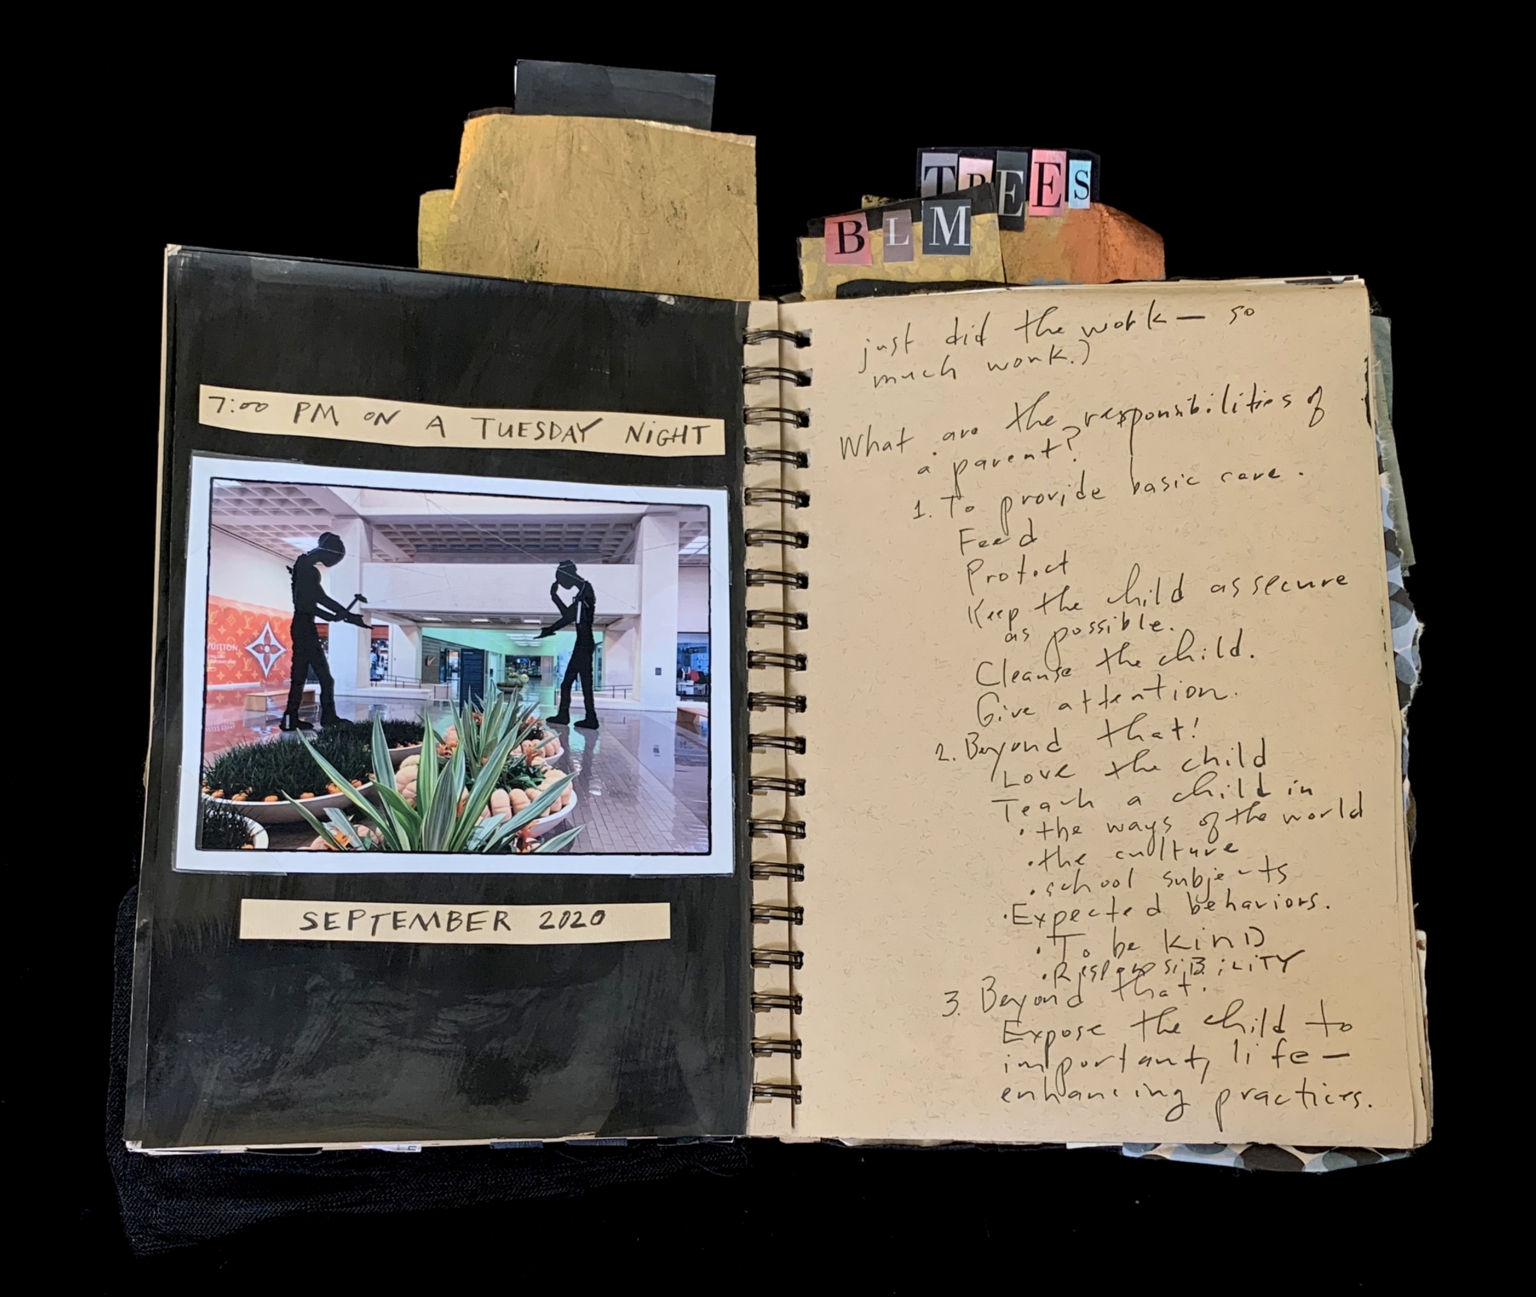 TREES
BLM
7:00 PM ON A TUESDAY NIGHT
VUITTON
SEPTEMBER 2020
just did the work — so
much work.)
What are the responsibilities of
a parent?
1. To provide basic care.
Feed
Protect
Keep the child as secure
as possible.
Cleanse the child.
Give attention.
2. Beyond that!
Love the child
Teach a child in
• the ways of the world
• the culture
• school subjects
• Expected behaviors.
• To be KIND
• RESPONSIBILITY
3. Beyond that.
Expose the child to
important, life-
enhancing practices.